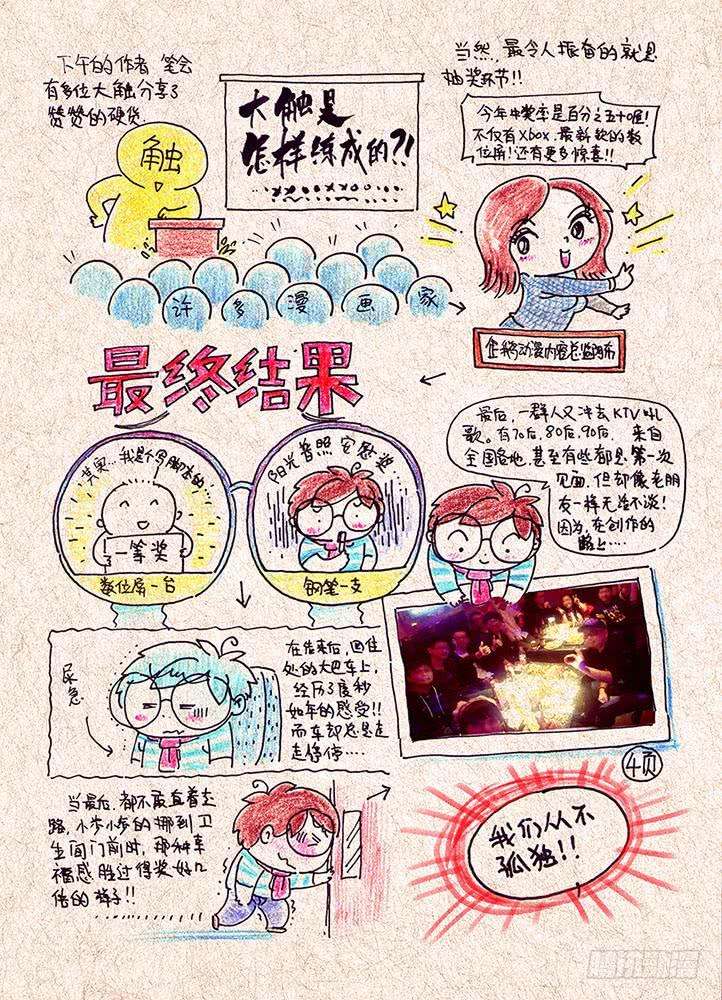 下午的作者 笔会
有多位大触分享了
赞赞的硬货.
触
大触是
怎样练成的?!
许多漫画家
当然,最令人振奋的就是
抽奖环节!!
今年中奖率是百分之五十喔!
不仅有Xbox.最新款的数
位屏!还有更多惊喜!!
企鹅动漫内容总监阿布
最终结果
其实...我是个写脚本的...
一等奖
数位屏一台
阳光普照 安慰奖...
钢笔一支
最后,一群人又冲去KTV吼
歌。有70后,80后,90后. 来自
全国各地,甚至有些都是第一次
见面,但却像老朋
友一样无话不谈!
因为,在创作的
路上....
尿急
在结束后,回住
处的大巴车上,
经历了度秒
如年的感受!!
而车却总是走
走停停....
4页
当最后,都不敢直着走
路,小步小步的挪到卫
生间门前时,那种幸
福感胜过得奖好几
倍的样子!!
我们从不
孤独!!
腾讯动漫